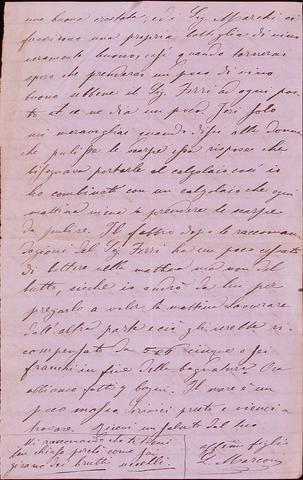 una buona crostata, ed i Sig. Marchi ci
favorirono una propria bottiglia di vino
veramente buono, così quando tornerai
spero che prenderai un poco di vino
buono sebbene il Sig. Ferri ad ogni pas-
to ce ne dia un poco. Ieri solo
mi meravigliai quando dissi alla donna
che pulisse le scarpe essa rispose che
bisognava portarle al calzolaio così io
ho combinato con un calzolaio che ogni
mattina viene a prendere le scarpe
da pulire. Il fabbro dopo le raccoman-
dazioni del Sig. Ferri ha un poco cessato
di battere nella mattina ma non del
tutto, sicchè io andrò da lui per
pregarlo a voler la mattina lavorare
dall'altra parte e ciò gli verrebbe ri-
compensato da cinque o sei
franchi in fine della bagnatura. Ora
abbiamo fatti 4 bagni. Il mare è un
poco mosso. Scrivici presto e vienci a
trovare. Ricevi un saluto dal tuo
affmo figlio
G. Marconi
Mi raccomando che tu tenga
ben chiuso perché come sai
girano dei brutti uccelli.